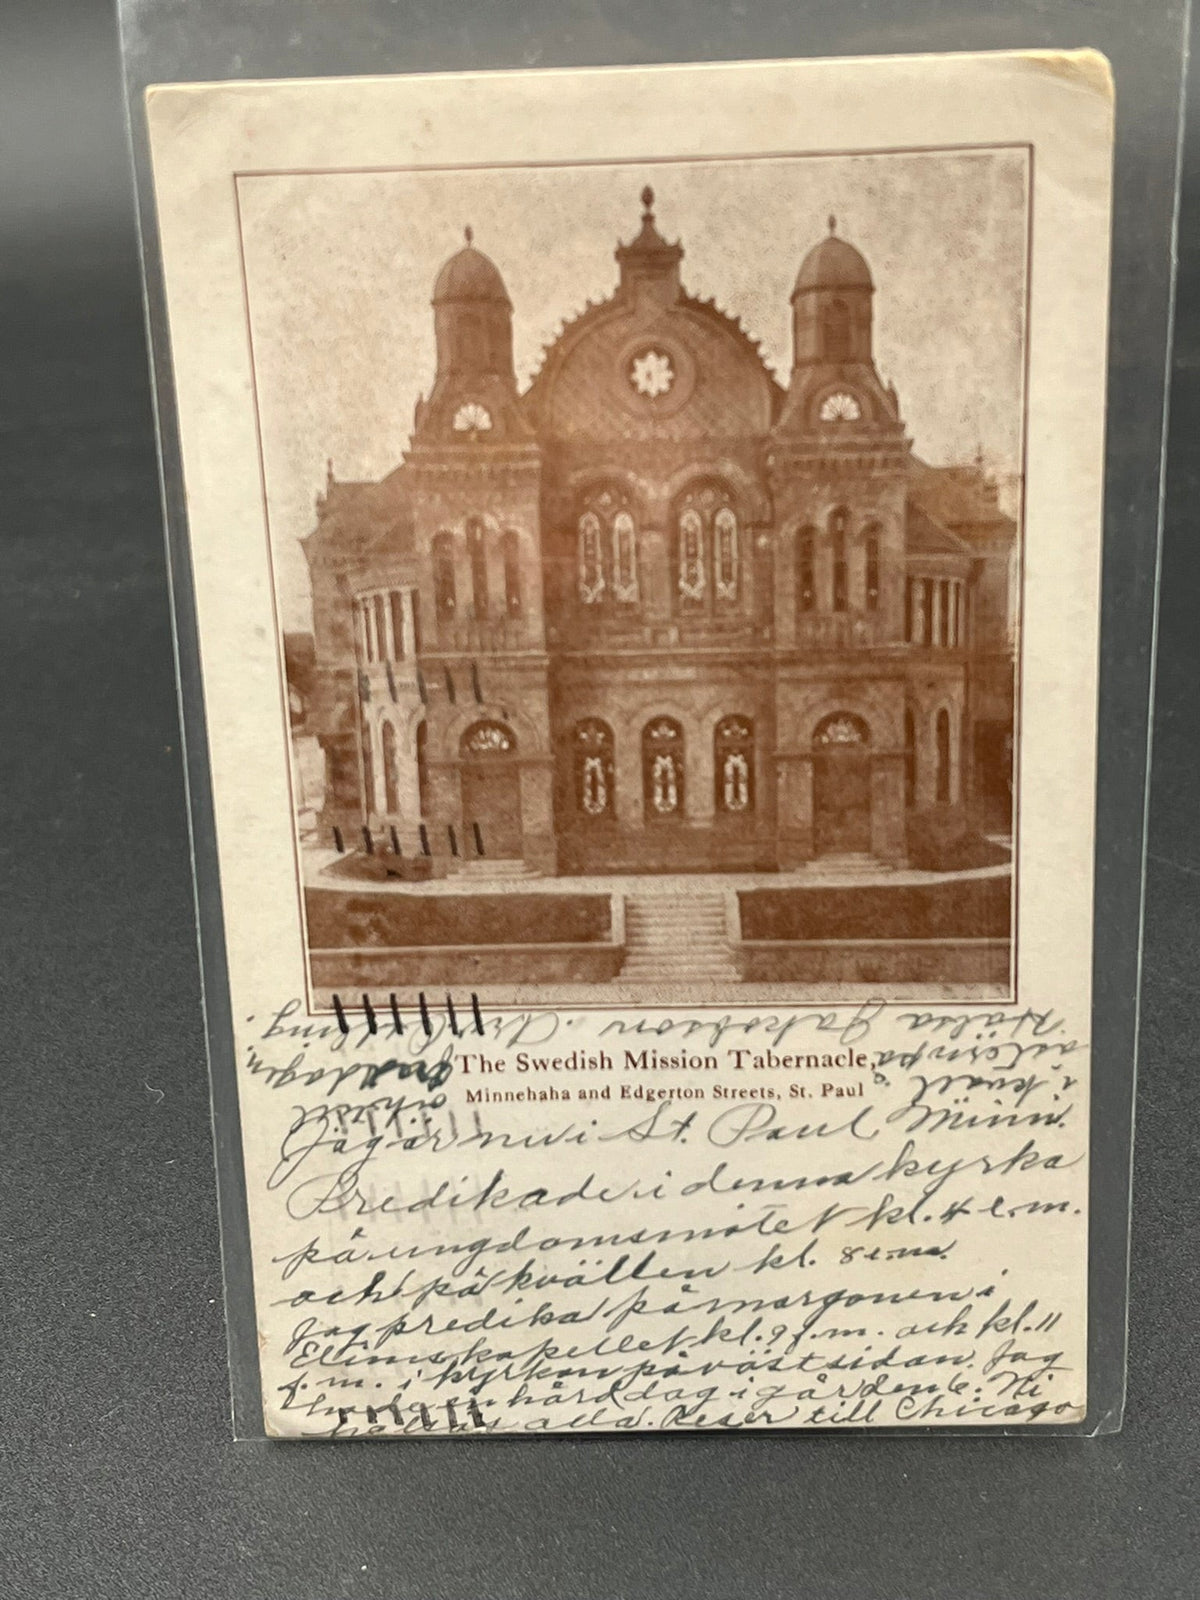 The Swedish Mission Tabernacle,
Minnehaha and Edgerton Streets, St. Paul
Jag är nu i St. Paul, Minn.
Predikade i denna kyrka
på ungdomsmötet kl. 4 e.m.
och på kvällen kl. 8 e.m.
Jag predika på morgonen i
Elimskapellet kl. 9 f.m. och kl. 11
f.m. i kyrkan på västsidan. Jag
hade en hård dag i går den 6. Ni
hälsas alla. Reser till Chicago
i kväll
fredagen,
Hälsa Jakobson.